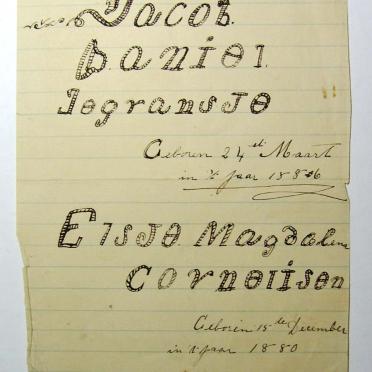 Jacob.
Daniel.
legransje
Geboren 24st Maart
in 't jaar 1886
Elsje Magdalena
Cornelisen
Geboren 15de December
in 't jaar 1880